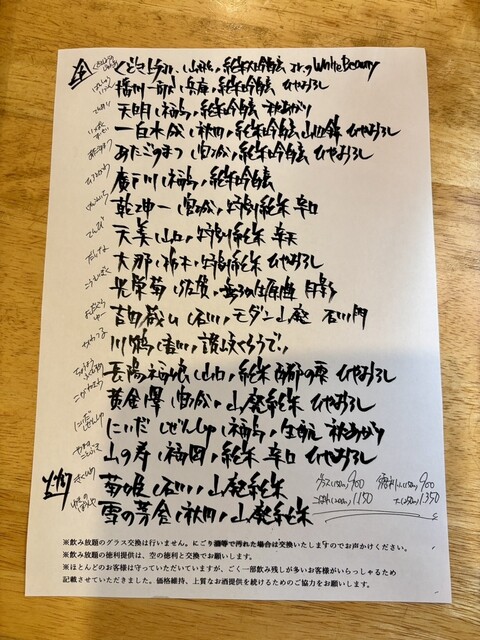 くどき上手Jr. (山形) 純米大吟醸 Jr.のWhite Beauty
播州一献 (兵庫) 純米吟醸 ひやおろし
天明 (福島) 純米吟醸 秋あがり
一白水成 (秋田) 純米吟醸 山田錦 ひやおろし
あたごのまつ (宮城) 純米吟醸 ひやおろし
廣戸川 (福島) 純米吟醸
乾坤一 (宮城) 特別純米 辛口
天美 (山口) 特別純米
大那 (栃木) 特別純米 ひやおろし
光栄菊 (佐賀) 月影
吉田蔵u (石川) モダン山廃 石川門
川鶴 (香川) 讃岐くらうでぃ
長陽福娘 (山口) 純米 西都の雫 ひやおろし
黄金澤 (宮城) 山廃純米 ひやおろし
にいだしぜんしゅ (福島) 生酛 秋あがり
山の寿 (福岡) 純米 辛口 ひやおろし
菊姫 (石川) 山廃純米
雪の茅舎 (秋田) 山廃純米
グラス(150cc) 900
1150
900
1350
※飲み放題のグラス交換は行いません。にごり酒等で汚れた場合は交換いたしますのでお声かけください。
※飲み放題の徳利提供は、空の徳利と交換でお願いします。
※ほとんどのお客様は守っていただいていますが、ごく一部飲み残しが多いお客様がいらっしゃるため
記載させていただきました。価格維持、上質なお酒提供を続けるためのご協力をお願いします。